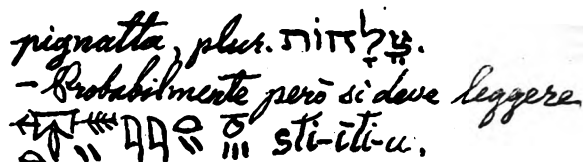 pignatta, plur. צֵלָחוֹת.
– Probabilmente però si deve leggere
sti-īti-u.